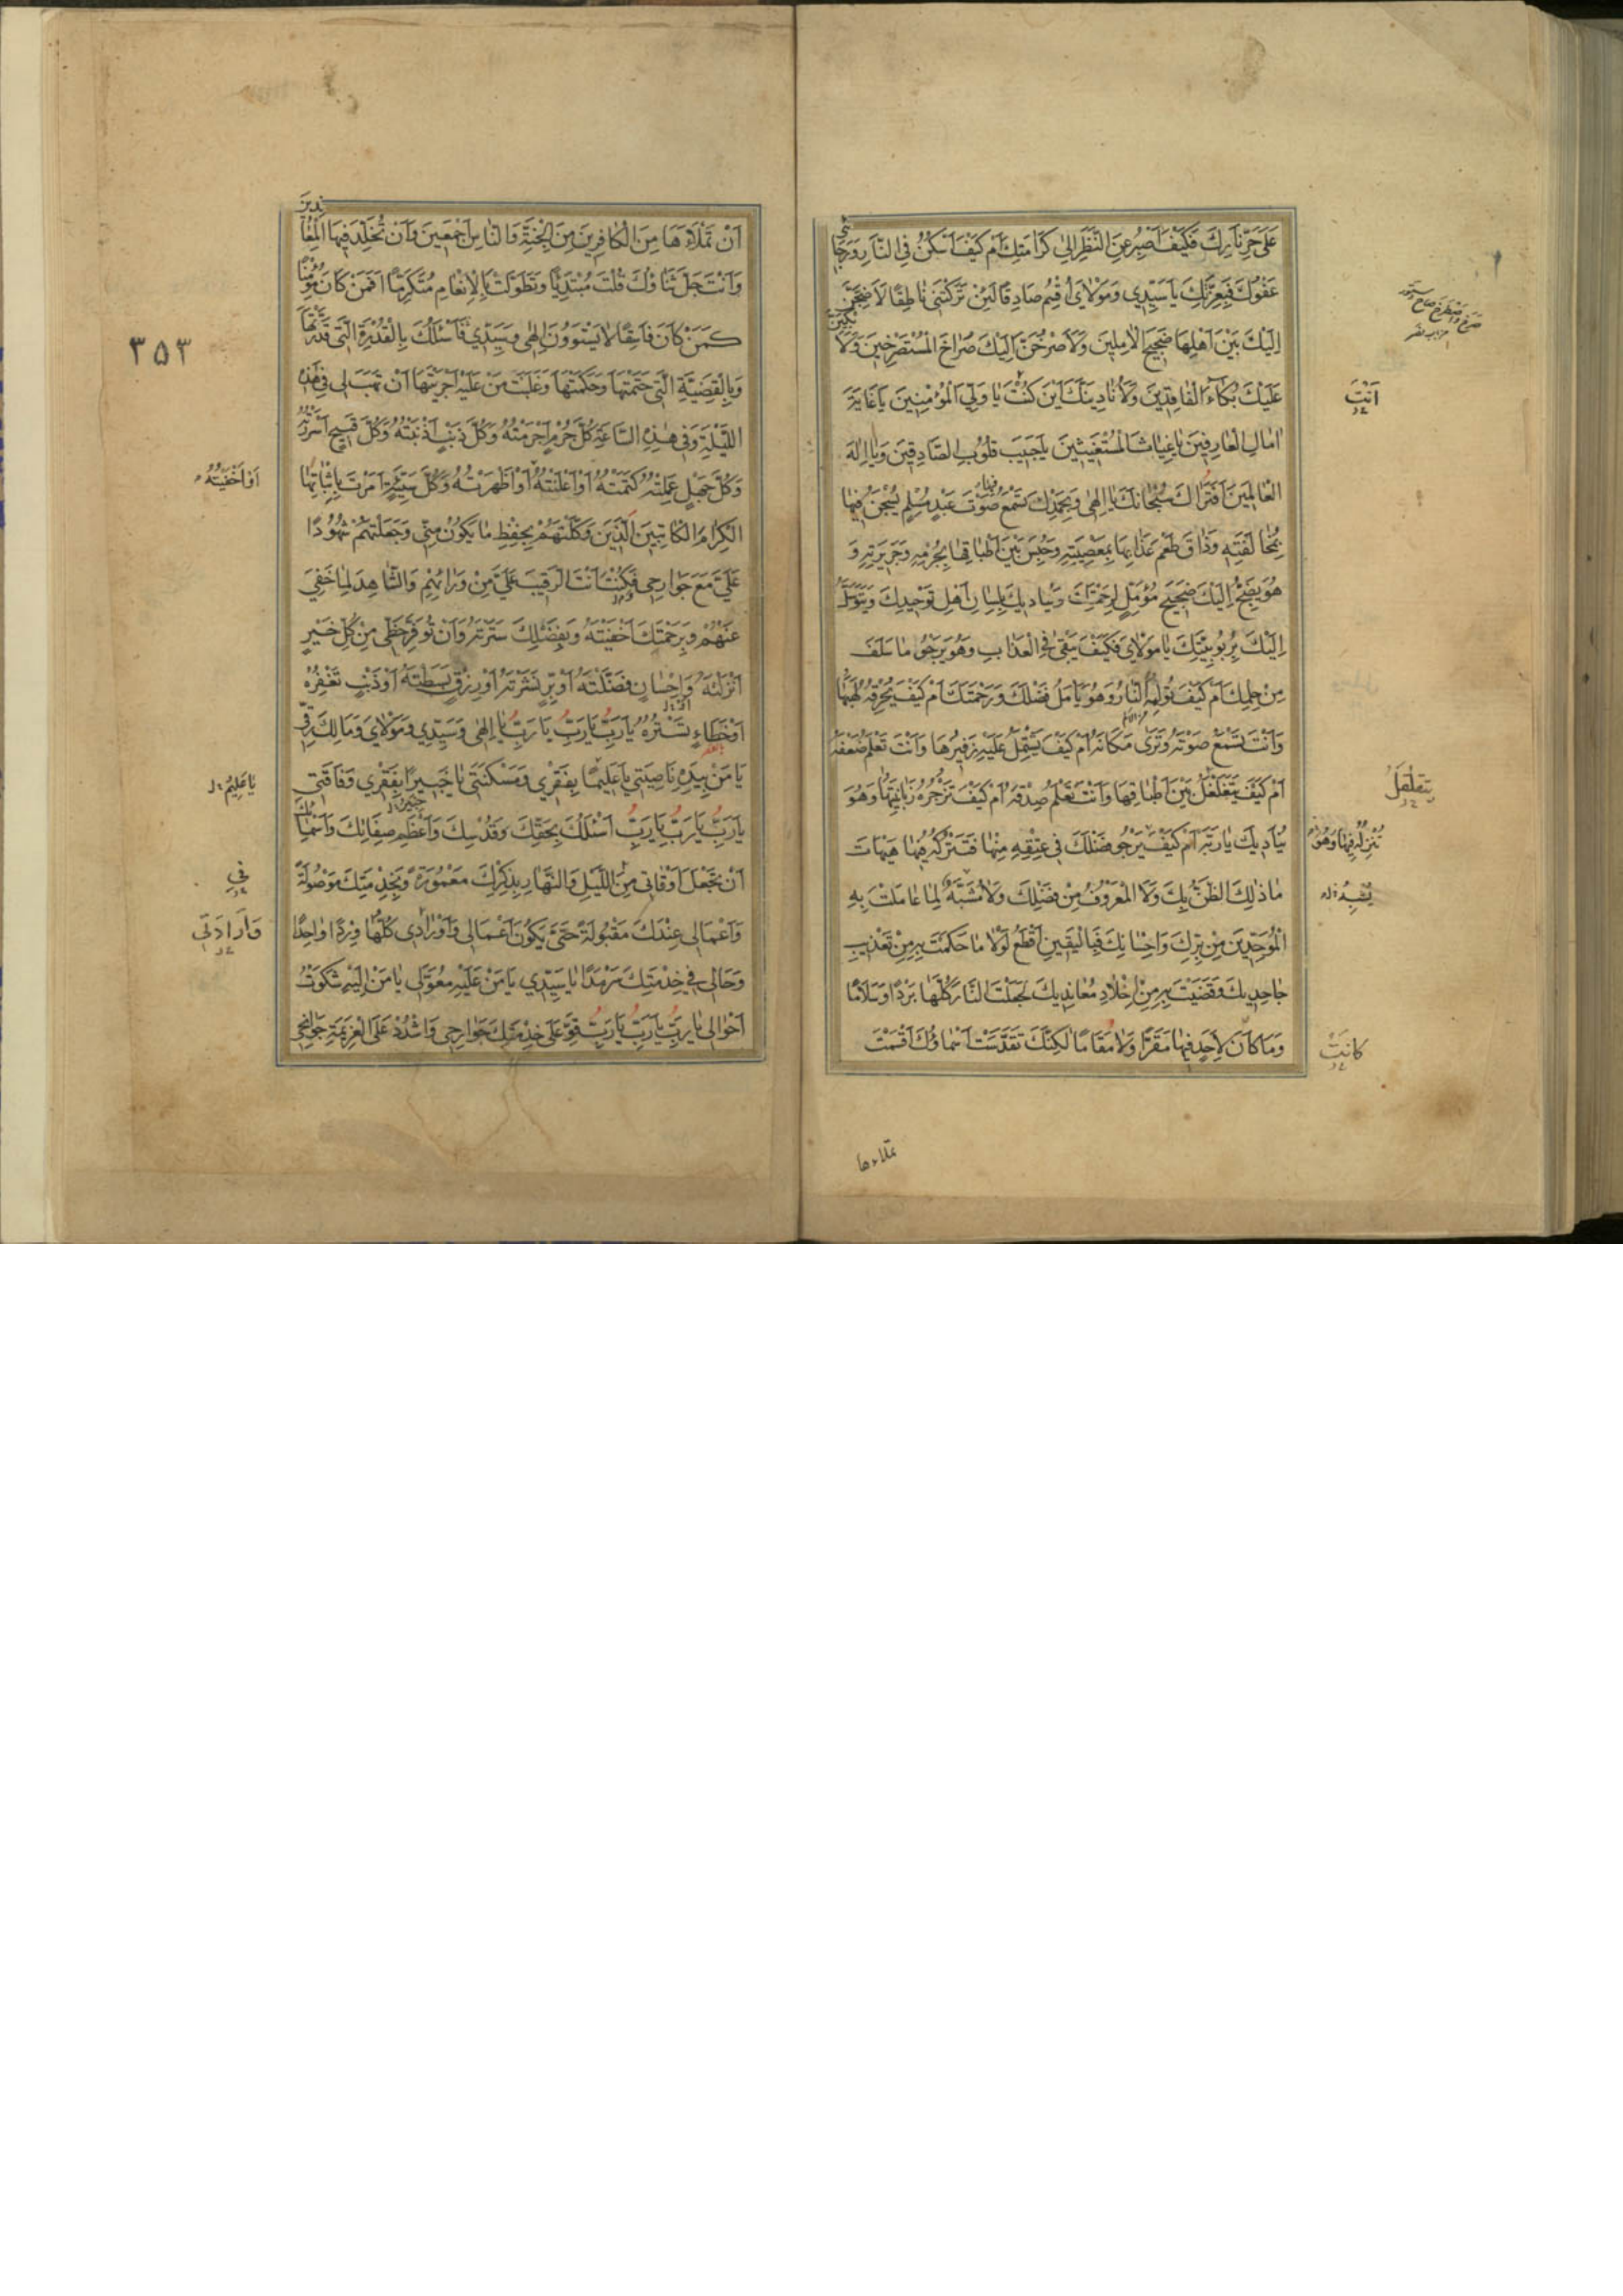 عَلىٰ حَرِّ نَارِكَ فَكَيْفَ اَصْبِرُ عَنِ النَّظَرِ اِلىٰ كَرَامَتِكَ اَمْ كَيْفَ اَسْكُنُ فِي النَّارِ وَرَجَائِي
عَفْوُكَ فَبِعِزَّتِكَ يَا سَيِّدِي وَمَوْلَايَ اُقْسِمُ صَادِقًا لَئِنْ تَرَكْتَنِي نَاطِقًا لَاَضِجَّنَّ
اِلَيْكَ بَيْنَ اَهْلِهَا ضَجِيجَ الْآمِلِينَ وَلَاَصْرُخَنَّ اِلَيْكَ صُرَاخَ الْمُسْتَصْرِخِينَ وَلَاَبْكِيَنَّ
عَلَيْكَ بُكَاءَ الْفَاقِدِينَ وَلَاُنَادِيَنَّكَ اَيْنَ كُنْتَ يَا وَلِيَّ الْمُؤْمِنِينَ يَا غَايَةَ
اٰمَالِ الْعَارِفِينَ يَا غِيَاثَ الْمُسْتَغِيثِينَ يَا حَبِيبَ قُلُوبِ الصَّادِقِينَ وَيَا اِلٰهَ
الْعَالَمِينَ اَفَتُرَاكَ سُبْحَانَكَ يَا اِلٰهِي وَبِحَمْدِكَ تَسْمَعُ فِيهَا صَوْتَ عَبْدٍ مُسْلِمٍ يُسْجَنُ فِيهَا
بِمُخَالَفَتِهِ وَذَاقَ طَعْمَ عَذَابِهَا بِمَعْصِيَتِهِ وَحُبِسَ بَيْنَ اَطْبَاقِهَا بِجُرْمِهِ وَجَرِيرَتِهِ وَ
هُوَ يَضِجُّ اِلَيْكَ ضَجِيجَ مُؤَمِّلٍ لِرَحْمَتِكَ وَيُنَادِيكَ بِلِسَانِ اَهْلِ تَوْحِيدِكَ وَيَتَوَسَّلُ
اِلَيْكَ بِرُبُوبِيَّتِكَ يَا مَوْلَايَ فَكَيْفَ يَبْقىٰ فِي الْعَذَابِ وَهُوَ يَرْجُو مَا سَلَفَ
مِنْ حِلْمِكَ اَمْ كَيْفَ تُؤْلِمُهُ النَّارُ وَهُوَ يَاْمَلُ فَضْلَكَ وَرَحْمَتَكَ اَمْ كَيْفَ يُحْرِقُهُ لَهَبُهَا
وَاَنْتَ تَسْمَعُ صَوْتَهُ وَتَرىٰ مَكَانَهُ اَمْ كَيْفَ يَشْتَمِلُ عَلَيْهِ زَفِيرُهَا وَاَنْتَ تَعْلَمُ ضَعْفَهُ
اَمْ كَيْفَ يَتَغَلْغَلُ بَيْنَ اَطْبَاقِهَا وَاَنْتَ تَعْلَمُ صِدْقَهُ اَمْ كَيْفَ تَزْجُرُهُ زَبَانِيَتُهَا وَهُوَ
يُنَادِيكَ يَا رَبَّهُ اَمْ كَيْفَ يَرْجُو فَضْلَكَ فِي عِتْقِهِ مِنْهَا فَتَتْرُكُهُ فِيهَا هَيْهَاتَ
مَا ذٰلِكَ الظَّنُّ بِكَ وَلَا الْمَعْرُوفُ مِنْ فَضْلِكَ وَلَا مُشْبَهٌ لِمَا عَامَلْتَ بِهِ
الْمُوَحِّدِينَ مِنْ بِرِّكَ وَاِحْسَانِكَ فَبِالْيَقِينِ اَقْطَعُ لَوْلَا مَا حَكَمْتَ بِهِ مِنْ تَعْذِيبِ
جَاحِدِيكَ وَقَضَيْتَ بِهِ مِنْ اِخْلَادِ مُعَانِدِيكَ لَجَعَلْتَ النَّارَ كُلَّهَا بَرْدًا وَسَلَامًا
وَمَا كَانَ لِاَحَدٍ فِيهَا مَقَرًّا وَلَا مُقَامًا لٰكِنَّكَ تَقَدَّسَتْ اَسْمَاؤُكَ اَقْسَمْتَ
اَنْتَ
يَتَقَلْقَلُ
تُنْزِلُهُ فِيهَا وَهُوَ
كَانَتْ
تملاءها
اَنْ تَمْلَاَهَا مِنَ الْكَافِرِينَ مِنَ الْجِنَّةِ وَالنَّاسِ اَجْمَعِينَ وَاَنْ تُخَلِّدَ فِيهَا الْمُعَانِدِينَ
وَاَنْتَ جَلَّ ثَنَاؤُكَ قُلْتَ مُبْتَدِئًا وَتَطَوَّلْتَ بِالْاِنْعَامِ مُتَكَرِّمًا اَفَمَنْ كَانَ مُؤْمِنًا
كَمَنْ كَانَ فَاسِقًا لَا يَسْتَوُونَ اِلٰهِي وَسَيِّدِي فَاَسْئَلُكَ بِالْقُدْرَةِ الَّتِي قَدَّرْتَهَا
وَبِالْقَضِيَّةِ الَّتِي حَتَمْتَهَا وَحَكَمْتَهَا وَغَلَبْتَ مَنْ عَلَيْهِ اَجْرَيْتَهَا اَنْ تَهَبَ لِي فِي هٰذِهِ
اللَّيْلَةِ وَفِي هٰذِهِ السَّاعَةِ كُلَّ جُرْمٍ اَجْرَمْتُهُ وَكُلَّ ذَنْبٍ اَذْنَبْتُهُ وَكُلَّ قَبِيحٍ اَسْرَرْتُهُ
وَكُلَّ جَهْلٍ عَمِلْتُهُ كَتَمْتُهُ اَوْ اَعْلَنْتُهُ اَوْ اَظْهَرْتُهُ وَكُلَّ سَيِّئَةٍ اَمَرْتَ بِاِثْبَاتِهَا
الْكِرَامَ الْكَاتِبِينَ الَّذِينَ وَكَّلْتَهُمْ بِحِفْظِ مَا يَكُونُ مِنِّي وَجَعَلْتَهُمْ شُهُودًا
عَلَيَّ مَعَ جَوَارِحِي فَكُنْتَ اَنْتَ الرَّقِيبَ عَلَيَّ مِنْ وَرَائِهِمْ وَالشَّاهِدَ لِمَا خَفِيَ
عَنْهُمْ وَبِرَحْمَتِكَ اَخْفَيْتَهُ وَبِفَضْلِكَ سَتَرْتَهُ وَاَنْ تُوَفِّرَ حَظِّي مِنْ كُلِّ خَيْرٍ
اَنْزَلْتَهُ وَاِحْسَانٍ فَضَّلْتَهُ اَوْ بِرٍّ نَشَرْتَهُ اَوْ رِزْقٍ بَسَطْتَهُ اَوْ ذَنْبٍ تَغْفِرُهُ
اَوْ خَطَاءٍ تَسْتُرُهُ يَا رَبِّ يَا رَبِّ يَا رَبِّ يَا اِلٰهِي وَسَيِّدِي وَمَوْلَايَ وَمَالِكَ رِقِّي
يَا مَنْ بِيَدِهِ نَاصِيَتِي يَا عَلِيمًا بِفَقْرِي وَمَسْكَنَتِي يَا خَبِيرًا بِفَقْرِي وَفَاقَتِي
يَا رَبِّ يَا رَبِّ يَا رَبِّ اَسْئَلُكَ بِحَقِّكَ وَقُدْسِكَ وَاَعْظَمِ صِفَاتِكَ وَاَسْمَائِكَ
اَنْ تَجْعَلَ اَوْقَاتِي مِنَ اللَّيْلِ وَالنَّهَارِ بِذِكْرِكَ مَعْمُورَةً وَبِخِدْمَتِكَ مَوْصُولَةً
وَاَعْمَالِي عِنْدَكَ مَقْبُولَةً حَتّىٰ يَكُونَ اَعْمَالِي وَاَوْرَادِي كُلُّهَا وِرْدًا وَاحِدًا
وَحَالِي فِي خِدْمَتِكَ سَرْمَدًا يَا سَيِّدِي يَا مَنْ عَلَيْهِ مُعَوَّلِي يَا مَنْ اِلَيْهِ شَكَوْتُ
اَحْوَالِي يَا رَبِّ يَا رَبِّ يَا رَبِّ قَوِّ عَلىٰ خِدْمَتِكَ جَوَارِحِي وَاشْدُدْ عَلَى الْعَزِيمَةِ جَوَانِحِي
٣٥٣
اَوْ اَخْفَيْتُهُ
يَا عَلِيمُ
فِي
وَاِرَادَتِي